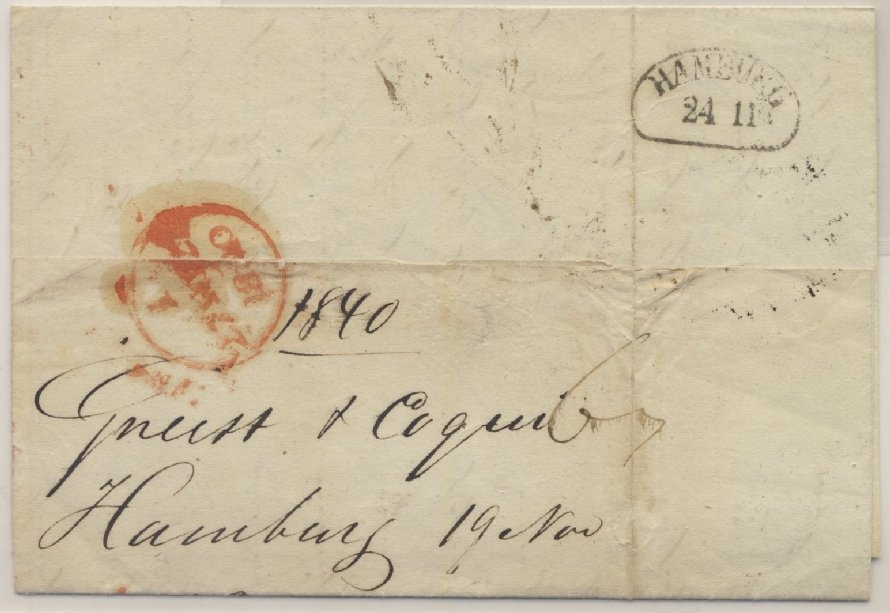 HAMBURG
24 11
1840
Gneist &
Hamburg 19 Nov